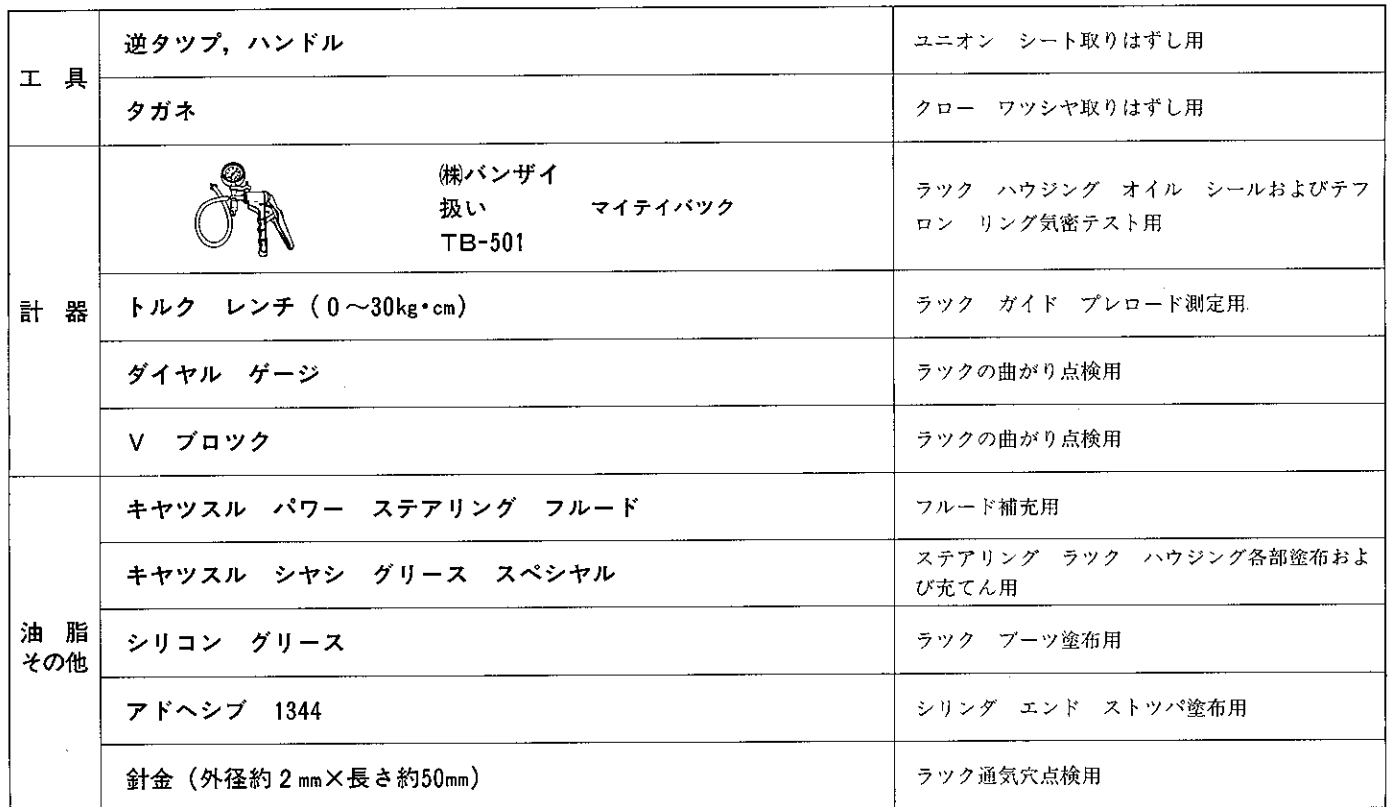 工具
逆タツプ，ハンドル
ユニオン　シート取りはずし用
タガネ
クロー　ワツシヤ取りはずし用
計器
㈱バンザイ
扱い　マイテイバツク
TB-501
ラツク　ハウジング　オイル　シールおよびテフ
ロン　リング気密テスト用
トルク　レンチ（0～30kg・cm）
ラツク　ガイド　プレロード測定用
ダイヤル　ゲージ
ラツクの曲がり点検用
V　ブロツク
ラツクの曲がり点検用
油脂
その他
キヤツスル　パワー　ステアリング　フルード
フルード補充用
キヤツスル　シヤシ　グリース　スペシヤル
ステアリング　ラツク　ハウジング各部塗布およ
び充てん用
シリコン　グリース
ラツク　ブーツ塗布用
アドヘシブ　1344
シリンダ　エンド　ストツパ塗布用
針金（外径約2㎜×長さ約50㎜）
ラツク通気穴点検用